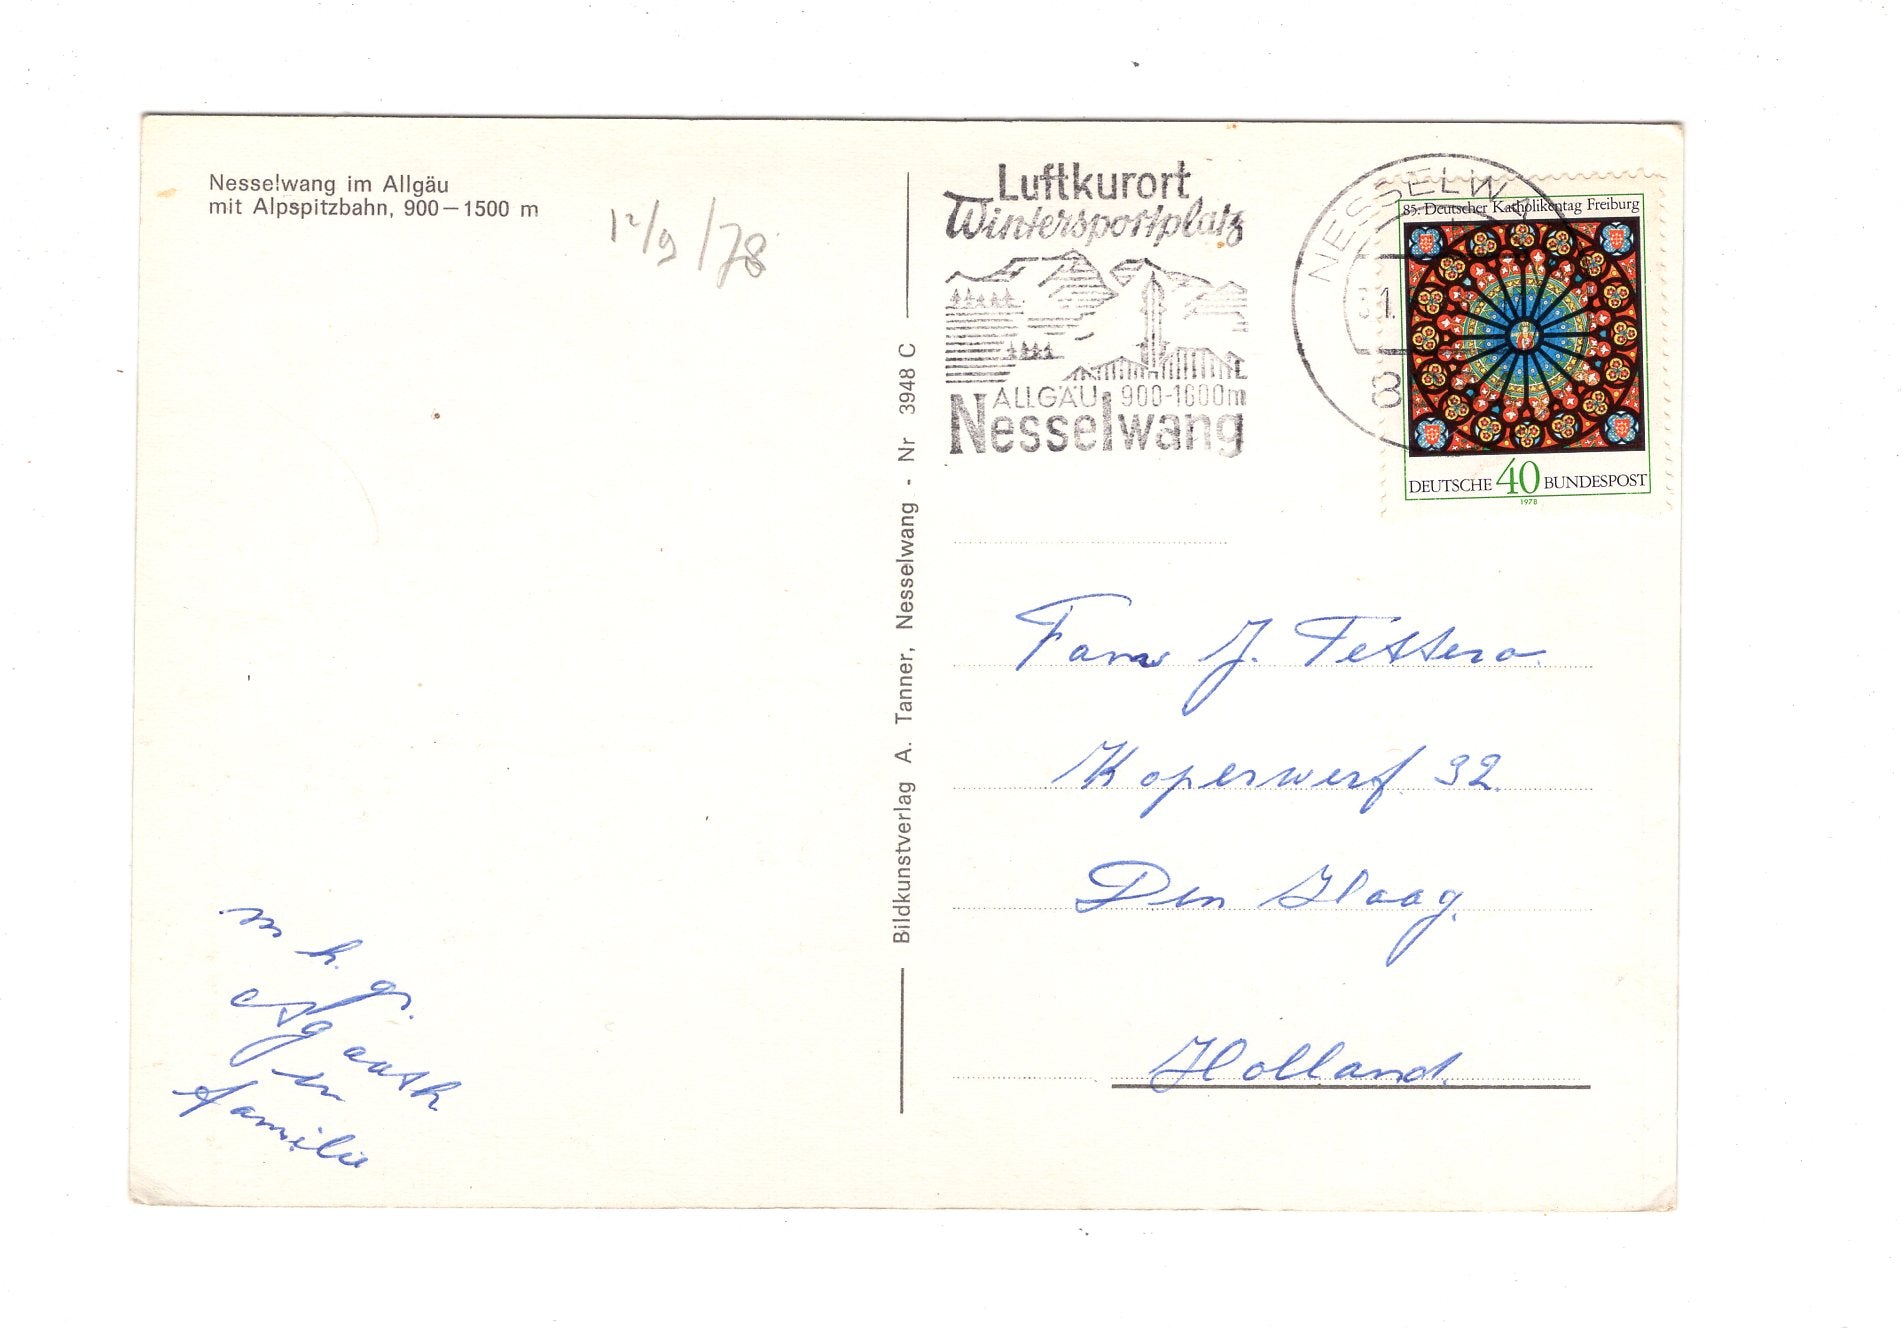 Nesselwang im Allgäu
mit Alpspitzbahn, 900–1500 m
12/9/78
m h. gr.
familie
Bildkunstverlag A. Tanner, Nesselwang - Nr 3948 C
Luftkurort
Wintersportplatz
ALLGÄU 900-1600m
Nesselwang
NESSELW
1.
8
85. Deutscher Katholikentag Freiburg
DEUTSCHE 40 BUNDESPOST
1978
Fam J. Tettero
Koperwerf 32
Den Haag.
Holland.